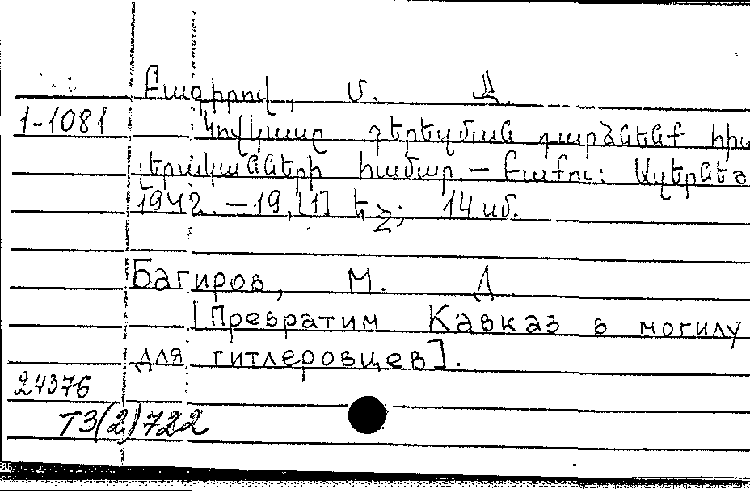 Բաղիրով, Մ. Դ.
1-1081 Կովկասը գերեզման դարձնենք հիտ
լերականների համար — Բաքու: Ազերնեշ
1942. — 19, [1] եջ; 14 սմ.
Багиров, М. Д.
[Превратим Кавказ в могилу
для гитлеровцев].
24376
Т3(2)722